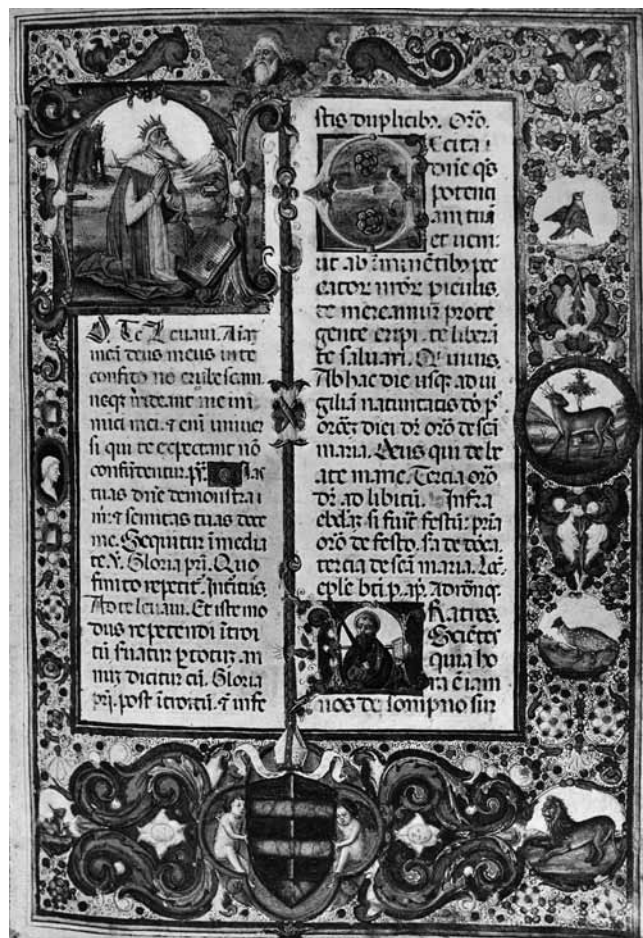 D. Te Levavi. Aiaz
meā deus meus in te
confido nō erubescam.
neqȝ irrideant me ini
mici mei. ⁊ eni univer
si qui te expectant nō
confūdentur. pš. Vias
tuas dn̄e demonstra i
m̄. ⁊ semitas tuas doce
me. Sequitur īmedia
te. V. Gloria pr̄i. Quo
finito repetit̄. Introitus.
Ad te levavi. Et iste mo
dus repetendi ītroi
tū servatur p totuȝ an
nuȝ dicitur cū. Gloria
pr̄i. post ītroitū. ⁊ infe
stis duplicibȝ. Orō.
Excita
dn̄e qs
potenci
am tuā
et veni
ut ab īminētibȝ pec
catorȝ nr̄orȝ piculis.
te mereamur prote
gente eripi. te liberā
te salvari. Qui vivis.
Ab hac die usqȝ ad vi
giliā nativitatis dn̄i
dr̄ orō de scā
maria. Deus qui de be
ate marie. Tercia orō
dr̄ ad libitū. Infra
ebdaȝ. si fuit̄ festū. pria
orō de festo. sa de dn̄ica.
tercia de scā maria. Lc̄.
eple bti p. ap. Ad romȝ.
Fratres.
Scientes
quia ho
ra ē iam
nos de sompno sur